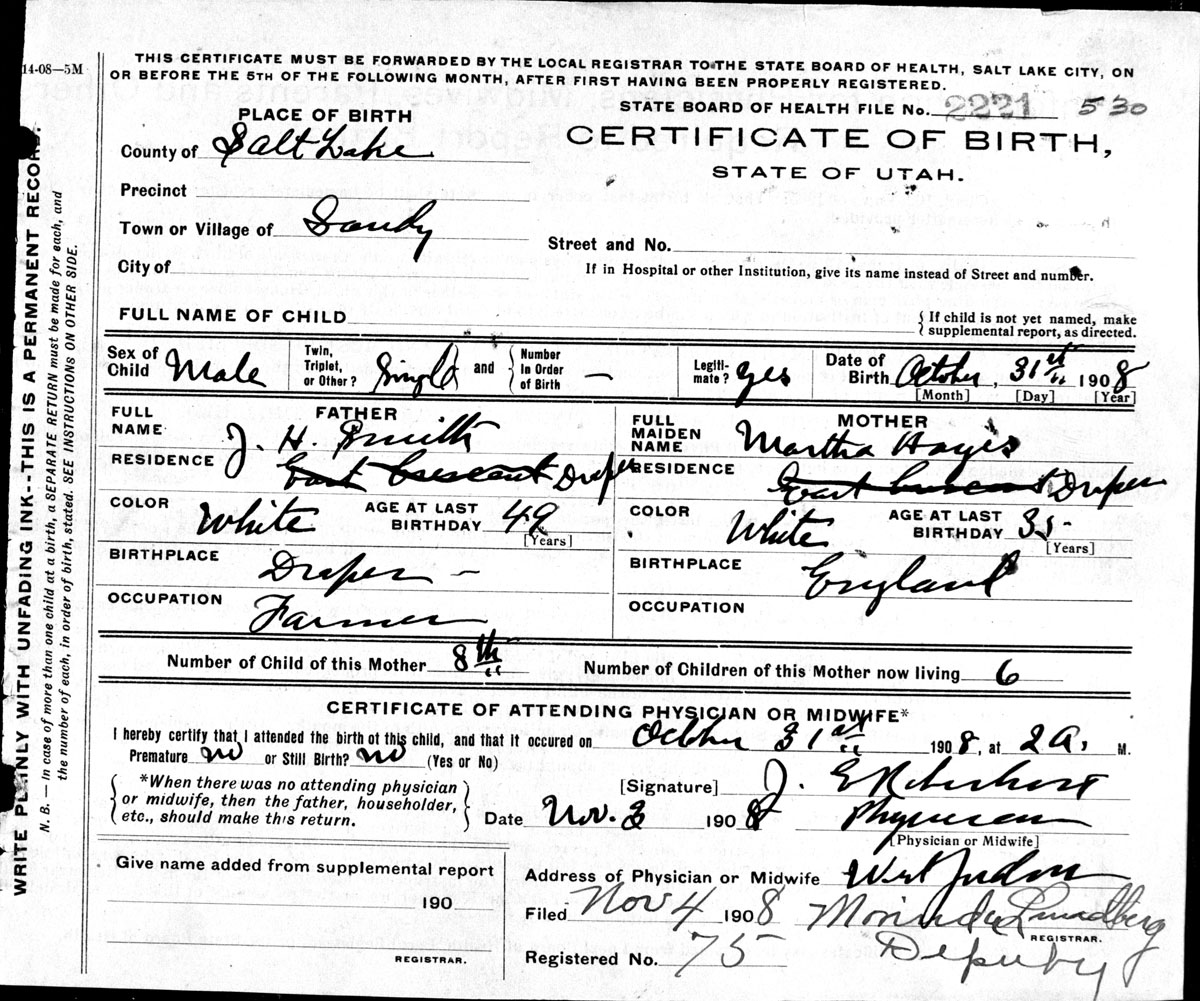 14-08—5M
THIS CERTIFICATE MUST BE FORWARDED BY THE LOCAL REGISTRAR TO THE STATE BOARD OF HEALTH, SALT LAKE CITY, ON
OR BEFORE THE 5TH OF THE FOLLOWING MONTH, AFTER FIRST HAVING BEEN PROPERLY REGISTERED.
STATE BOARD OF HEALTH FILE No. 2221 530
PLACE OF BIRTH
CERTIFICATE OF BIRTH,
STATE OF UTAH.
County of Salt Lake
Precinct
Town or Village of Sandy
Street and No.
City of
If in Hospital or other Institution, give its name instead of Street and number.
FULL NAME OF CHILD
{ If child is not yet named, make
supplemental report, as directed.
Sex of Child Male
Twin, Triplet, or Other? Single and { Number In Order of Birth —
Legiti-mate? yes
Date of Birth October, 31st 1908
[Month] [Day] [Year]
FATHER
FULL NAME J. H. Smith
RESIDENCE East Crescent Draper
COLOR White AGE AT LAST BIRTHDAY 49
[Years]
BIRTHPLACE Draper —
OCCUPATION Farmer
MOTHER
FULL MAIDEN NAME Martha Hayes
RESIDENCE East Crescent Draper
COLOR White AGE AT LAST BIRTHDAY 35
[Years]
BIRTHPLACE England
OCCUPATION
Number of Child of this Mother 8th
Number of Children of this Mother now living 6
CERTIFICATE OF ATTENDING PHYSICIAN OR MIDWIFE*
I hereby certify that I attended the birth of this child, and that it occured on October 31st 1908, at 2 A. M.
Premature no or Still Birth? no (Yes or No)
*When there was no attending physician
or midwife, then the father, householder,
etc., should make this return.
[Signature] J. E.
Date Nov. 3 1908 Physician
[Physician or Midwife]
Give name added from supplemental report
190
REGISTRAR.
Address of Physician or Midwife West Jordan
Filed Nov 4 1908 Lundberg
REGISTRAR.
Deputy
Registered No. 75
WRITE PLAINLY WITH UNFADING INK--THIS IS A PERMANENT RECORD.
N. B. — In case of more than one child at a birth, a SEPARATE RETURN must be made for each, and
the number of each, in order of birth, stated. SEE INSTRUCTIONS ON OTHER SIDE.